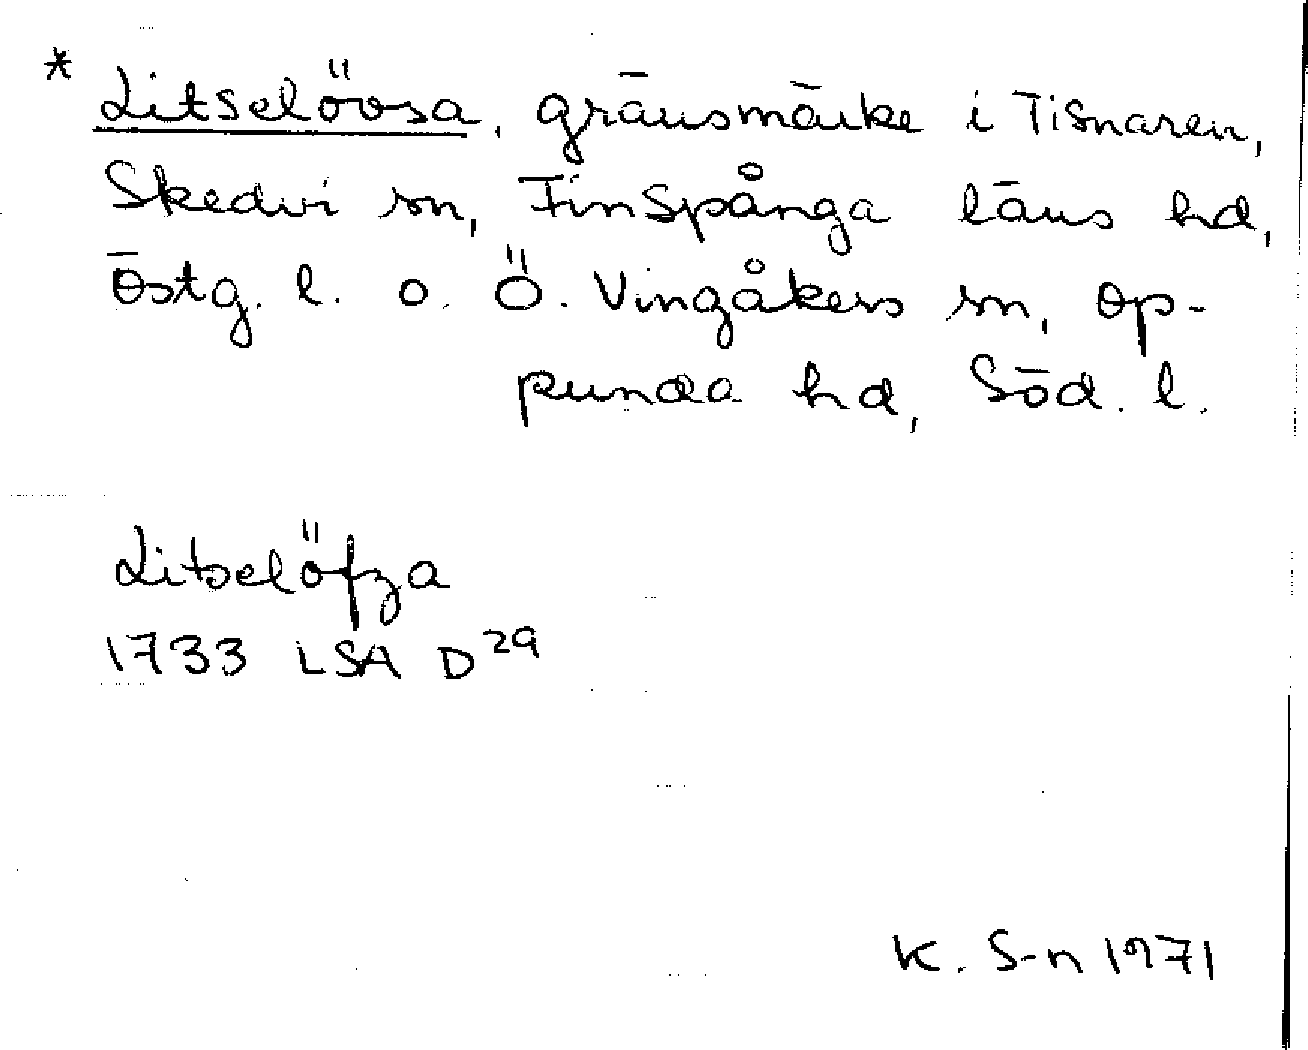 * Litselövsa, gränsmärke i Tisnaren,
Skedvi sn, Finspånga läns hd,
Östg. l. o. Ö. Vingåkers sn, Op-
punda hd, Söd. l.
Litselöfza
1733 LSA D 29
K. S-n 1971